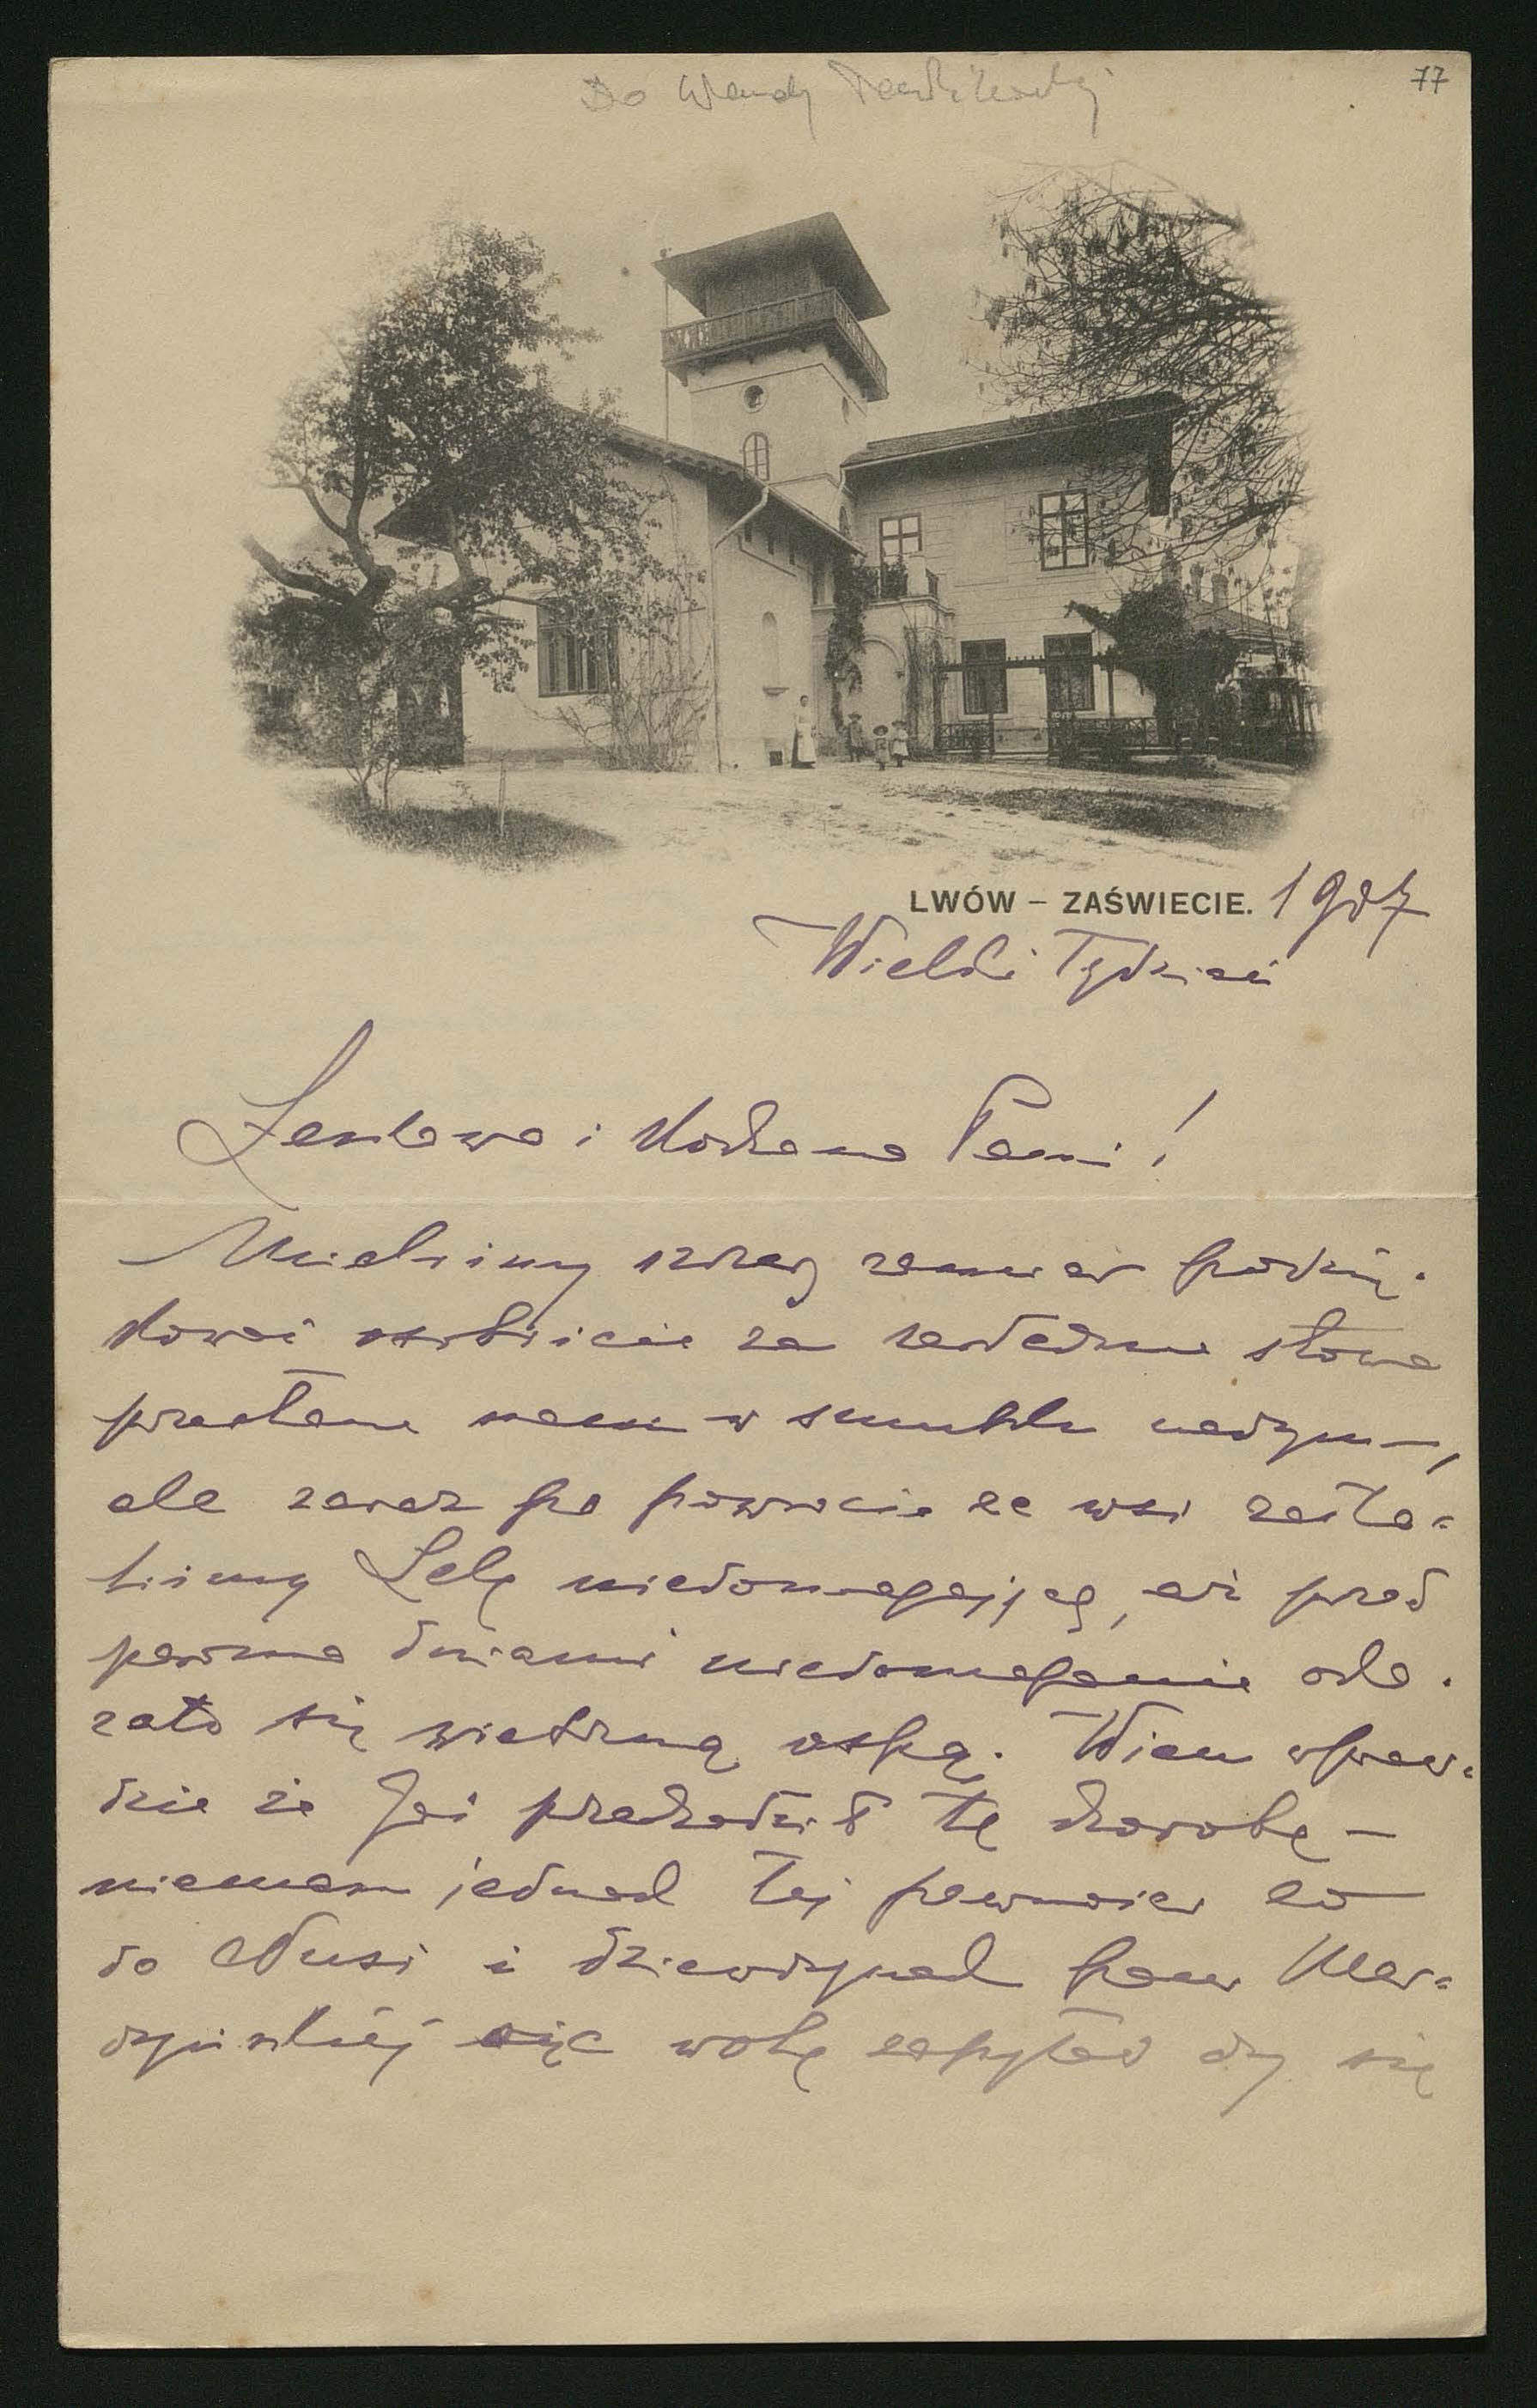 Do Wandy
77
LWÓW – ZAŚWIECIE. 1907
Wielki Tydzień
Łaskawa i Kochana Pani!
Mieliśmy szczery zamiar podzię-
kować osobiście za serdeczne słowa
przesłane nam w smutku naszym –,
ale zaraz po powrocie ze wsi zasta-
liśmy Lelę niedomagającą, aż przed
paroma dniami niedomaganie oka-
zało się wietrzną ospą. Wiem wpraw-
dzie że Jaś przechodził tę chorobę –
niemam jednak tej pewności co
do Nusi i dziewczynek pani
więc wolę zapytać czy się